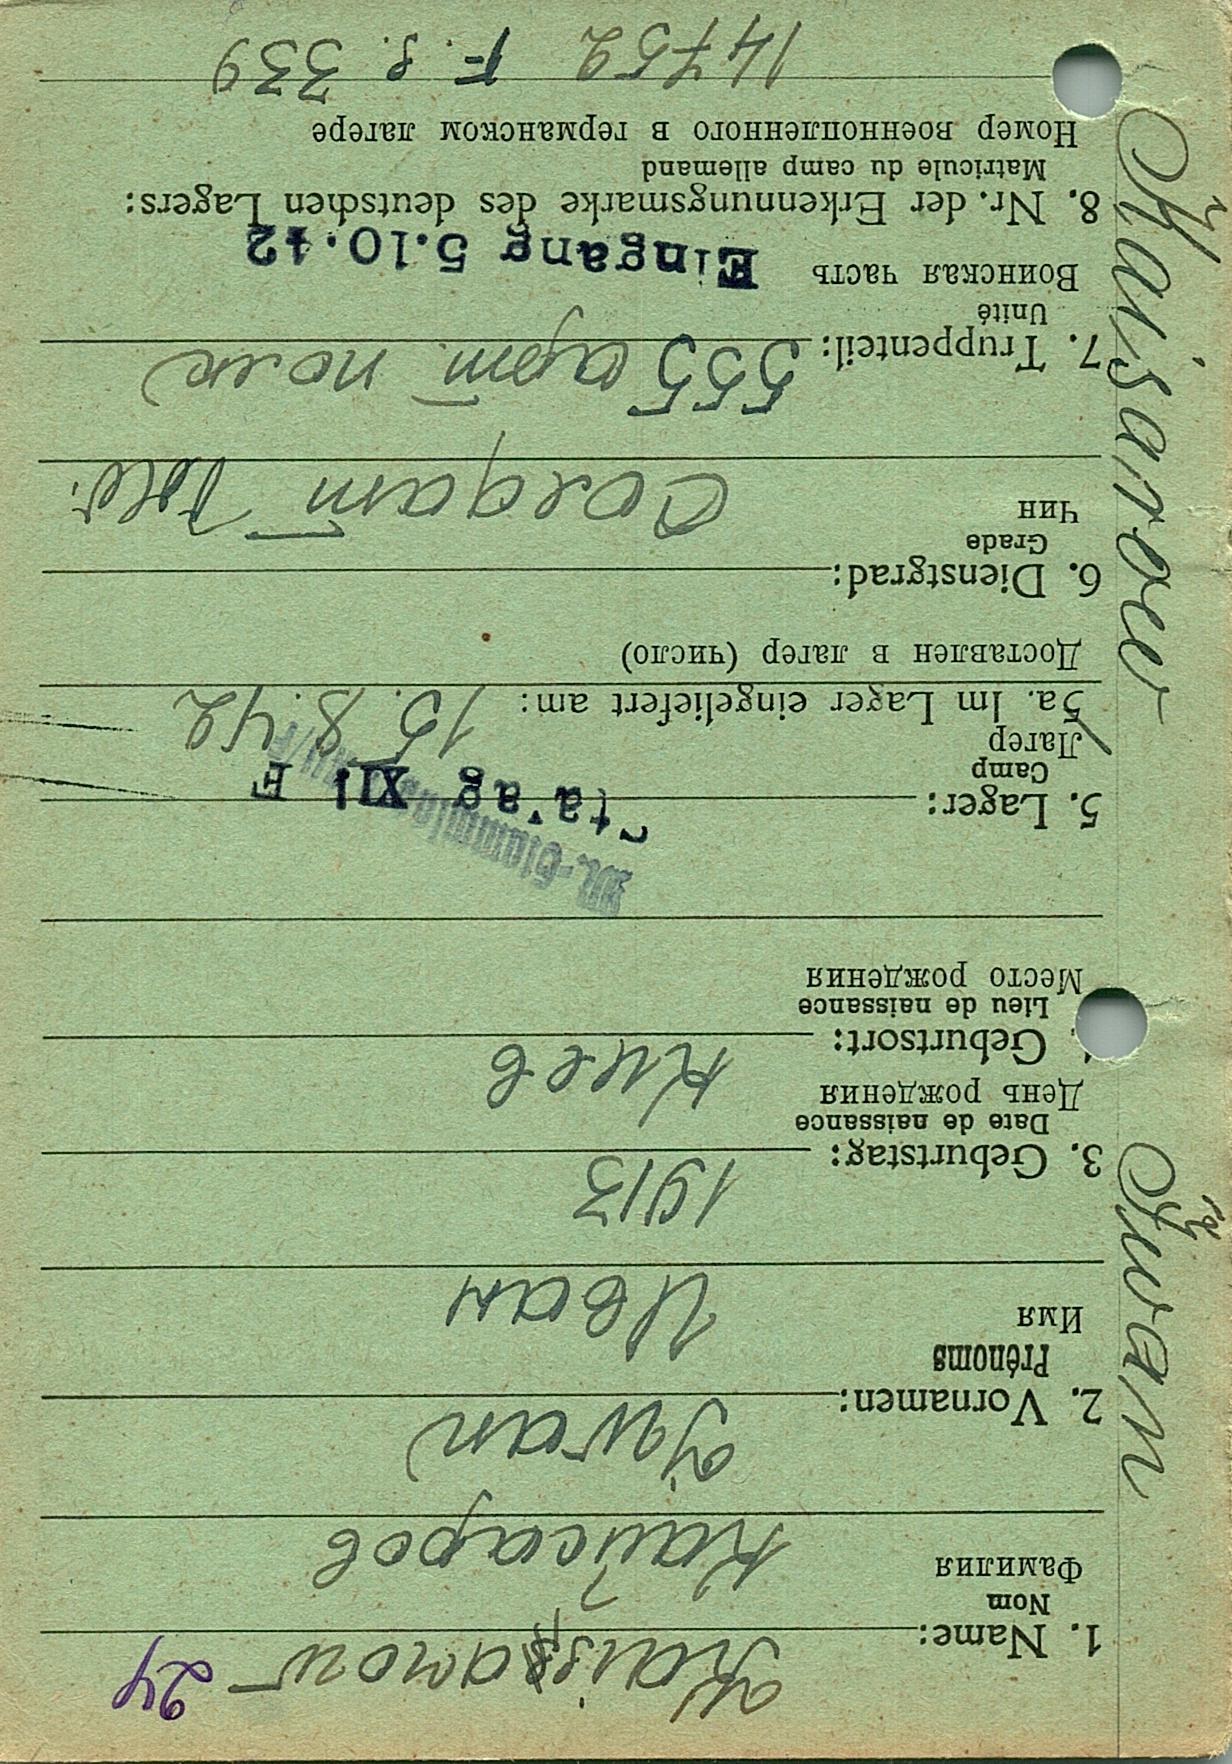 Kaisarow 24
1. Name:
Nom
Фамилия
Кайсаров
Iwan
2. Vornamen:
Prénoms
Имя
Иван
1913
3. Geburtstag:
Date de naissance
День рождения
Киев
Geburtsort:
Lieu de naissance
Место рождения
M.-Stammlager
5. Lager:
Camp
Лагер
XII F
5a. Im Lager eingeliefert am: 15.8.42
Доставлен в лагер (число)
6. Dienstgrad:
Grade
Чин
Солдат
7. Truppenteil: 555 арт. полк
Unité
Воинская часть
Eingang 5.10.42
8. Nr. der Erkennungsmarke des deutschen Lagers:
Matricule du camp allemand
Номер военнопленного в германском лагере
14752 F. S. 339
Kaisarow
Iwan